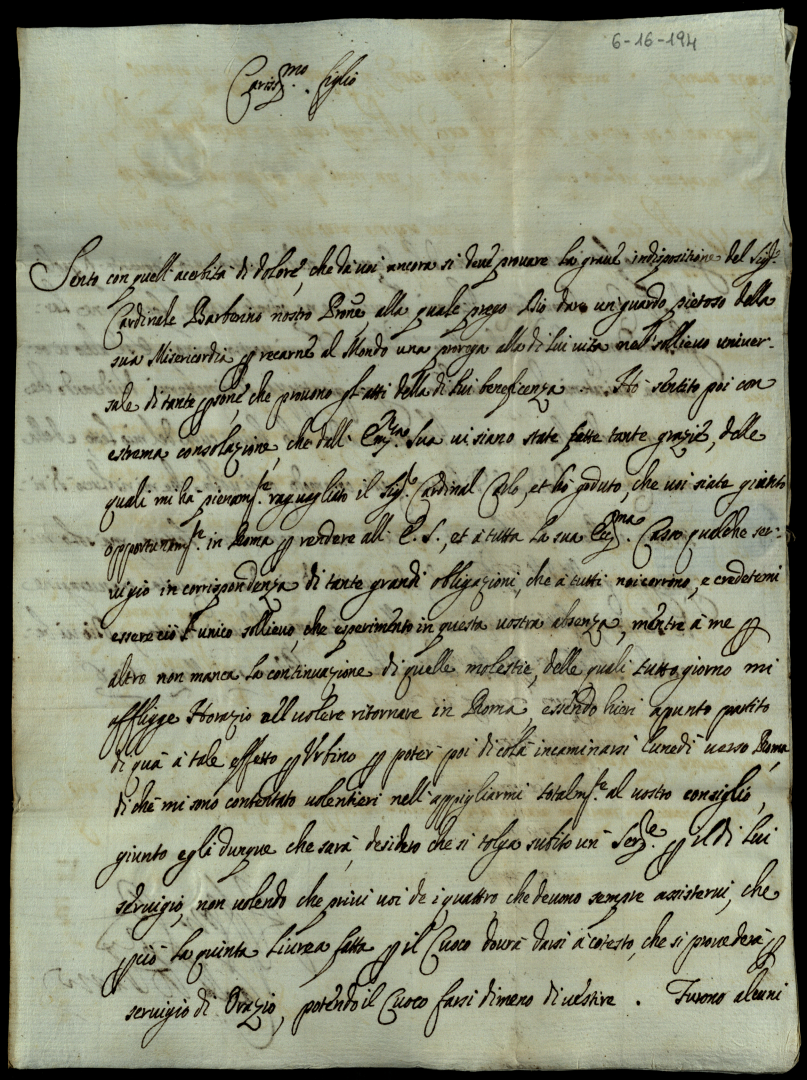 6-16-194
Cariss.mo figlio
Sento con quell'acerbità di dolore, che da voi ancora si deve provare la grave indispositione del Sig.r
Cardinale Barberino nostro Prone, alla quale prego Dio dare un guardo pietoso della
sua Misericordia p recarne al Mondo una proroga alla di lui vita nell'sollievo univer-
sale di tante psone, che provono gl'atti della di lui beneficenza. Hò sentito poi con
estrema consolazione, che dall' Em.za Sua vi siano state fatte tante grazie, delle
quali mi ha pienam.te raguagliato il Sig.r Cardinal Carlo, et hò goduto, che voi siate giunto
opportunam.te in Roma p rendere all' E. S., et à tutta la sua Ecc.ma Casa qualche ser-
vigio in corrispondenza di tante grandi obligazioni, che à tutti noi corrono, e credetemi
essere ciò l'unico sollievo, che esperimento in questa vostra absenza, mentre à me p
altro non manca la continuazione di quelle molestie, delle quali tutto giorno mi
affligge Horazio nell volere ritornare in Roma, essendo hieri apunto partito
di quà à tale effetto p Urbino p poter poi di colà incaminarsi lunedì verso Roma,
di che mi sono contentato volentieri nell'appigliarmi totalm.te al vostro consiglio,
giunto egli dunque che sarà, desidero che si tolga subito un Ser.re p il di lui
servigio, non volendo che privi voi de i quattro che devono sempre assistervi, che
pciò la quinta livrea fatta p il Cuoco dovrà darsi à cotesto, che si provederà p
servigio di Orazio, potendo il Cuoco farsi dimeno di vestire. Furono alcuni